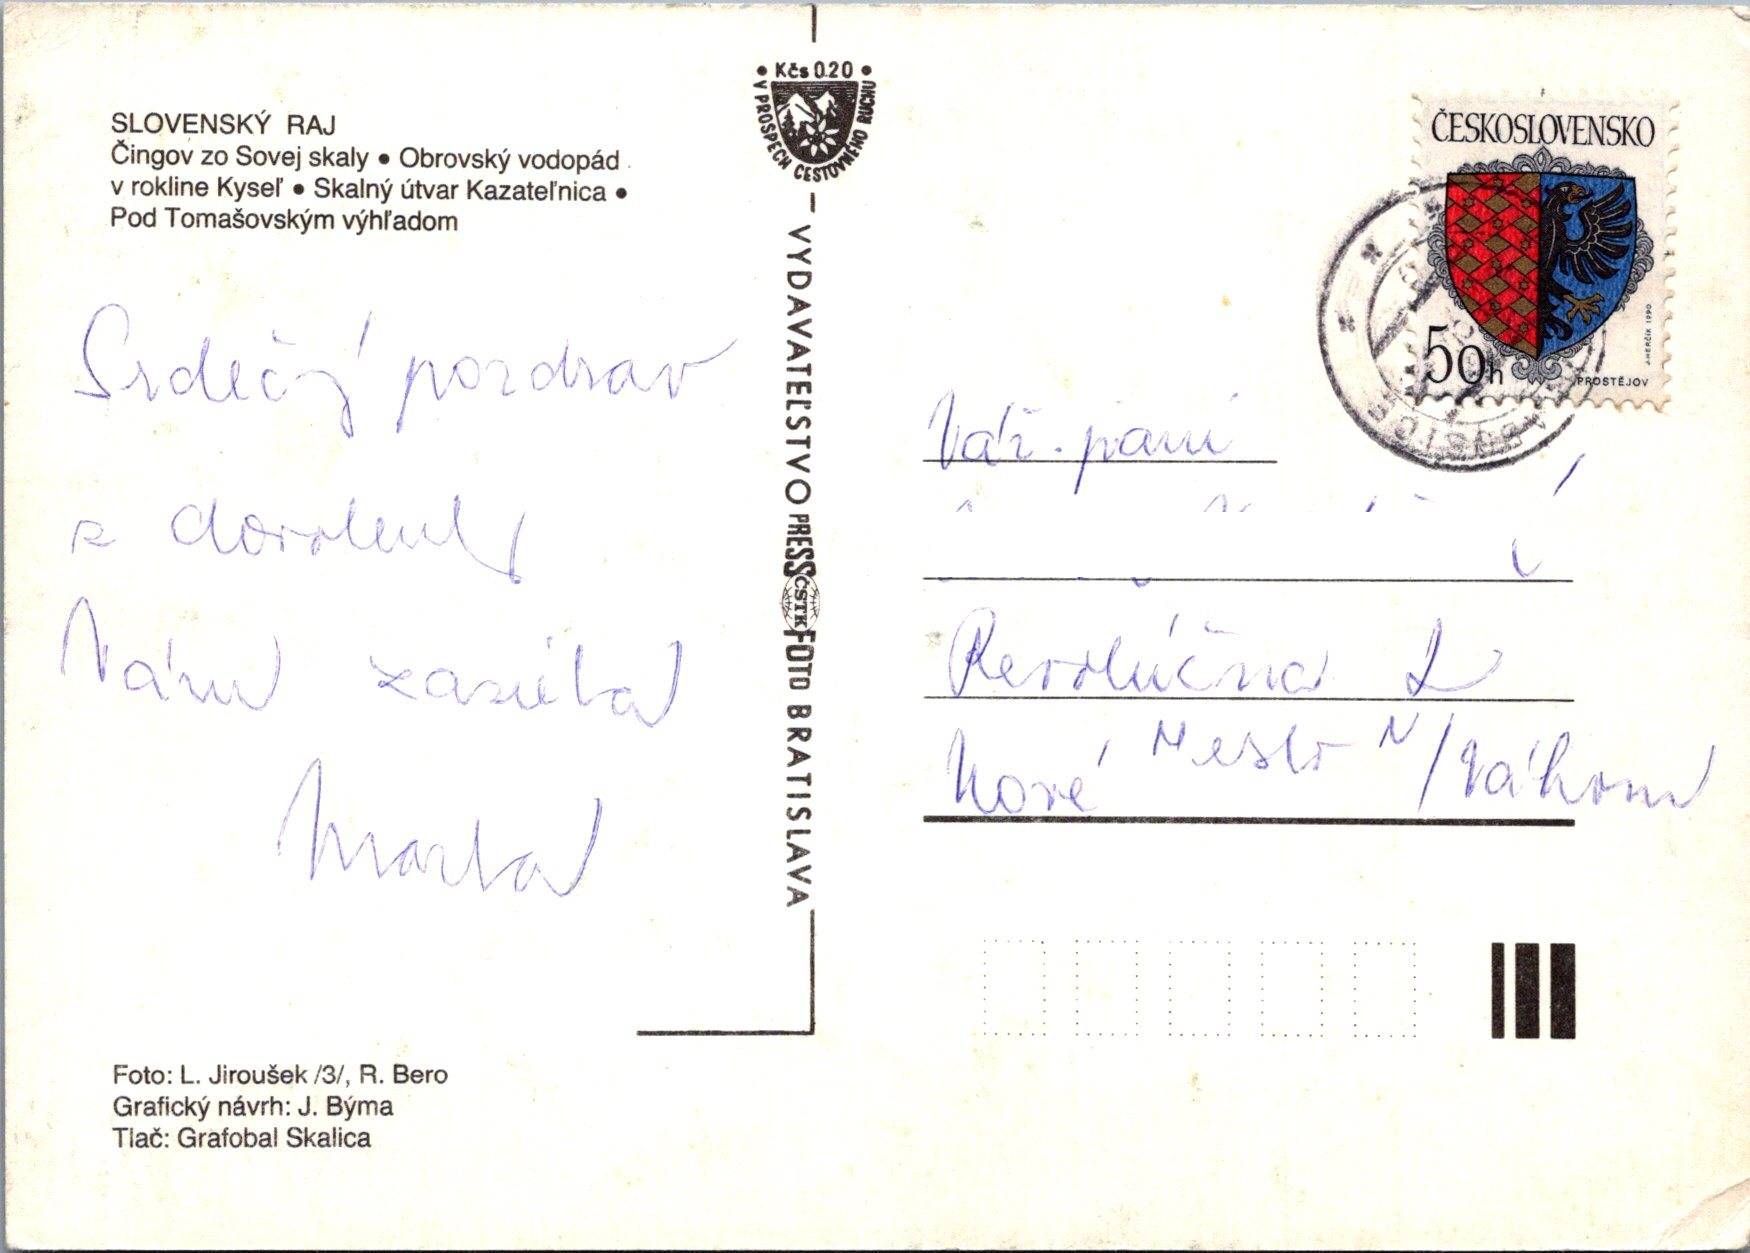 SLOVENSKÝ RAJ
Čingov zo Sovej skaly • Obrovský vodopád
v rokline Kyseľ • Skalný útvar Kazateľnica •
Pod Tomašovským výhľadom
Srdečný pozdrav
z dovolenky
Vám zasiela
Marta
Foto: L. Jiroušek /3/, R. Bero
Grafický návrh: J. Býma
Tlač: Grafobal Skalica
• Kčs 0.20 •
V PROSPECH CESTOVNÉHO RUCHU
VYDAVATEĽSTVO PRESSFOTO BRATISLAVA
ČSTK
ČESKOSLOVENSKO
50h
PROSTĚJOV
J. HERČÍK 1990
Váž. pani
Revolúčna 2
Nové Mesto N/Váhom